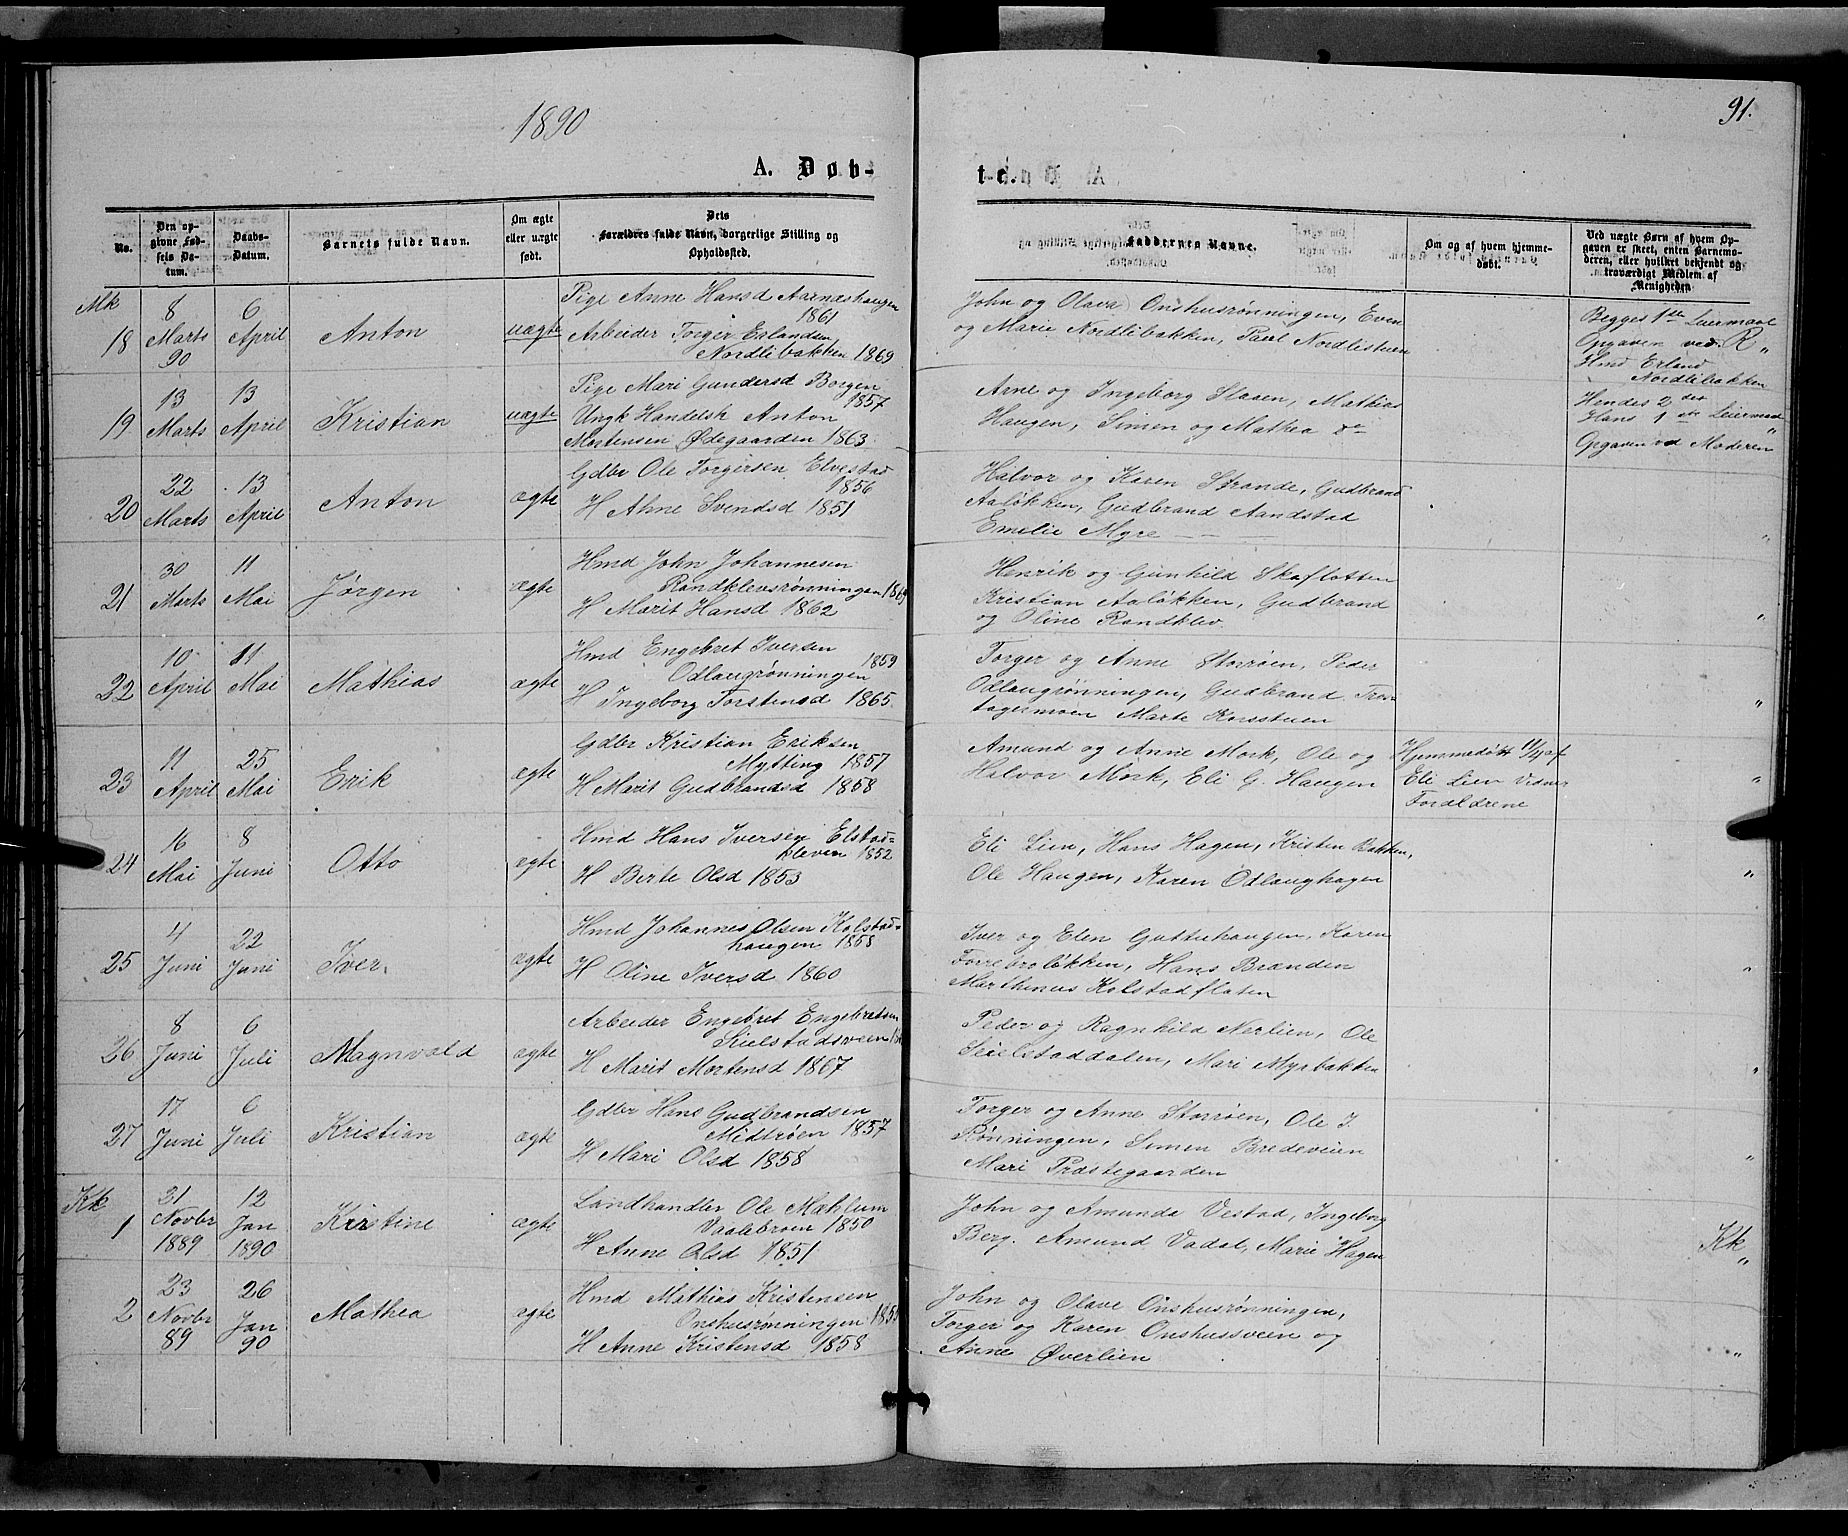 1890
91.
A. Døb-
te.
No.
Den opgivne Fødsels Datum.
Daabs-Datum.
Barnets fulde Navn.
Om ægte eller uægte født.
Dets Forældres fulde Navn, borgerlige Stilling og Opholdssted.
Faddernes Navne.
Om og af hvem hjemmedøbt.
Ved uægte Børn af hvem Opgaven er skeet, enten Barnemoderen, eller hvilket bekjendt og troværdigt Medlem af Menigheden
Mk
18
8 Marts 90
6 April
Anton
uægte
Pige Anne Hansd Aarnæshaugen 1861
Arbeider Torger Erlandsen
Nordlibakken 1869
John og Olava Onshusrønningen, Even
og Marie Nordlibakken, Paul Nordlistuen
Begges 1ste Leiermaal
Opgaven ved R „
Hmd Erland
Nordlibakken
19
13 Marts
13 April
Kristian
uægte
Pige Mari Gundersd Borgen 1857
Ungk Handelsk Anton
Mortensen Ødegaarden 1863
Arne og Ingeborg Slaaen, Mathias
Haugen, Simen og Mathea do
Hendes 2det
Hans 1ste Leiermaal
Opgaven ved Moderen
20
22 Marts
13 April
Anton
ægte
Gdbr Ole Torgersen Elvestad 1856
H Anne Svendsd 1851
Halvor og Karen Strande, Gudbrand
Aaløkken, Gudbrand Aandstad
Emelie Myre
„
21
30 Marts
11 Mai
Jørgen
ægte
Hmd John Johannesen
Randklevsrønningen 1869
H Marit Hansd 1862
Henrik og Gunhild Skaflotten
Kristian Aaløkken, Gudbrand
og Oline Randklev
„
22
10 April
11 Mai
Mathias
ægte
Hmd Engebret Iversen 1859
Odlaugrønningen
H Ingeborg Torstensd 1865
Torger og Anne Storrøen, Peder
Odlaugrønningen, Gudbrand Tre-
tagermoen Marte Korsstuen
„
23
11 April
25 Mai
Erik
ægte
Gdbr Kristian Eriksen
Mytting 1857
H Marit Gudbrandsd 1858
Amund og Anne Mork, Ole og
Halvor Mork, Eli G. Haugen
Hjemmedøbt 11/4 af
Eli Lien Vidner
Forældrene
„
24
16 Mai
8 Juni
Otto
ægte
Hmd Hans Iversen Elstad-
kleven 1852
H Berte Olsd 1853
Eli Lien, Hans Hagen, Kristen Bakken,
Ole Haugen, Karen Odlaughagen
„
25
4 Juni
22 Juni
Iver
ægte
Hmd Johannes Olsen Kolstad-
haugen 1858
H Oline Iversd 1860
Iver og Elen Guttuhaugen, Karen
Forrebroløkken, Hans Branden
Marthinus Kolstadflaten
„
26
8 Juni
6 Juli
Magnvald
ægte
Arbeider Engebret Engebretsen
Sielstadsveen
H Marit Mortensd 1867
Peder og Ragnhild Nerlien, Ole
Seielstaddalen, Mari Myrbakken
„
27
17 Juni
6 Juli
Kristian
ægte
Gdbr Hans Gudbrandsen
Midtrøen 1857
H Mari Olsd 1858
Torger og Anne Storrøen, Ole I.
Rønningen, Simen Bredeveien
Mari Præstegaarden
„
Kk
1
21 Novbr 1889
12 Jan 1890
Kristine
ægte
Landhandler Ole Mæhlum
Vaalebroen 1850
H Anne Olsd 1851
John og Amunda Vestad, Ingeborg
Berg, Amund Vadal, Marie Hagen
Kk
„
2
23 Novbr 89
26 Jan 90
Mathea
ægte
Hmd Mathias Kristensen
Onshusrønningen
H Anne Kristensd 1858
John og Olave Onshusrønningen,
Torger og Karen Onshussveen og
Anne Øverlien
„